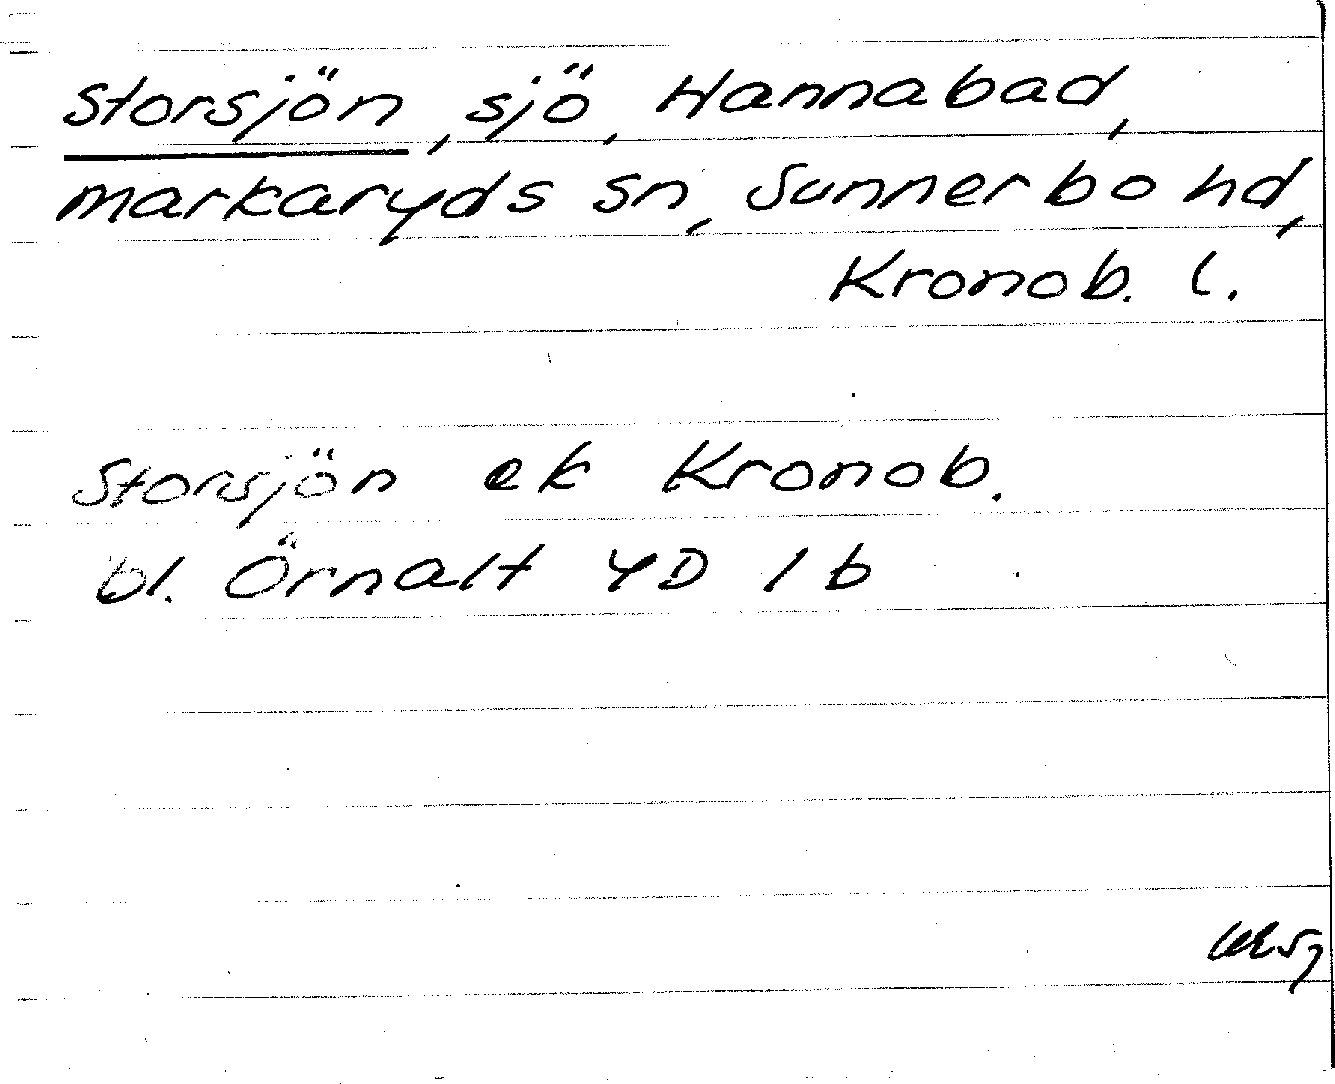 Storsjön, sjö, Hannabad,
markaryds sn, Sunnerbo hd,
Kronob. l.
Storsjön ek Kronob.
bl. Örnalt 4D 1b